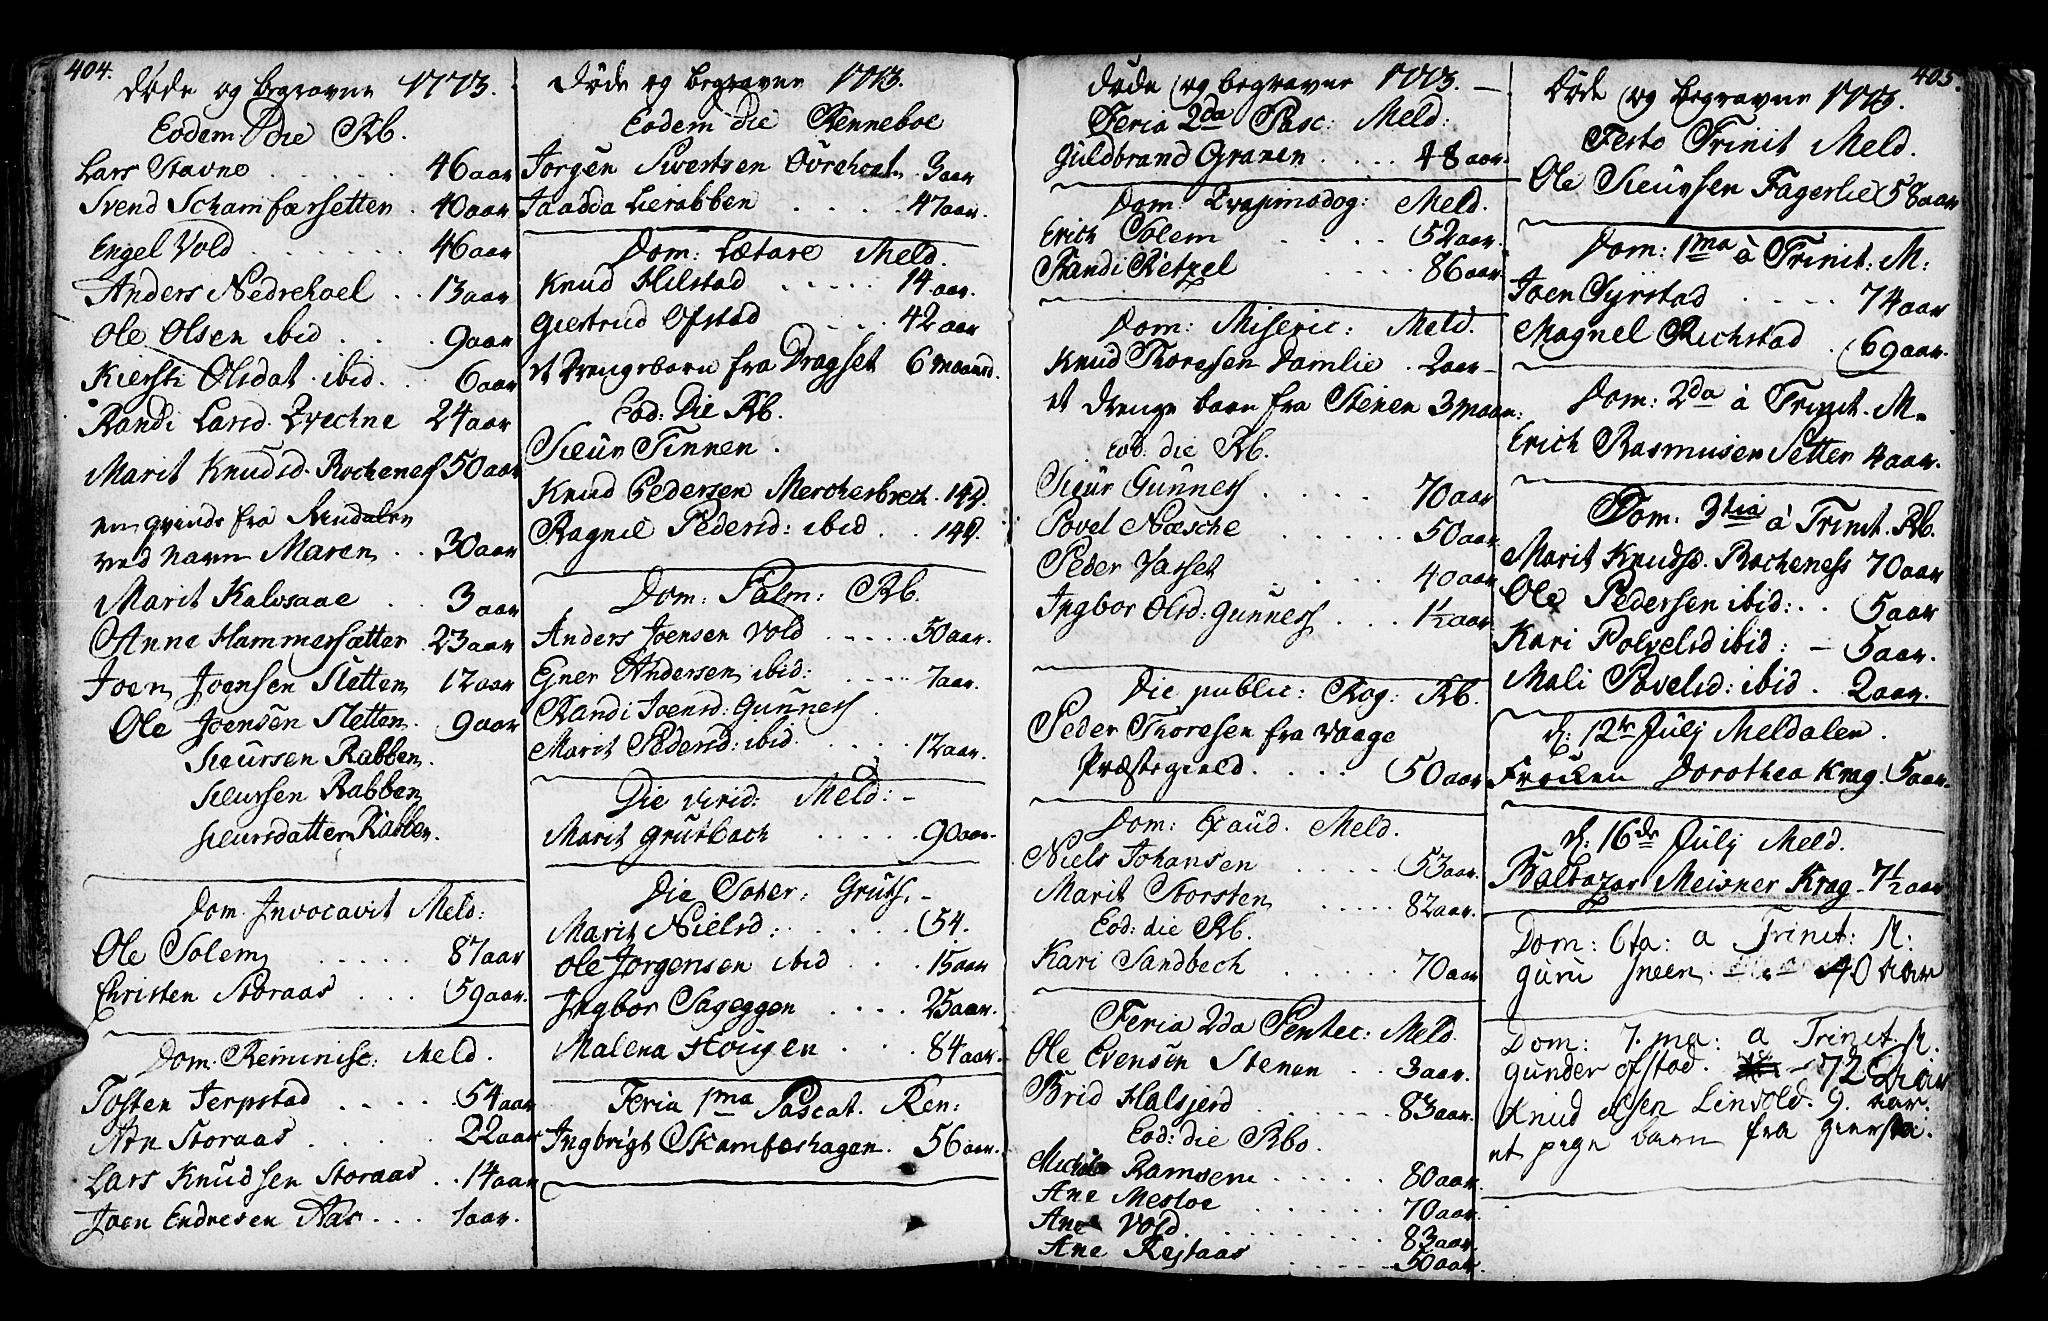 404.
Døde og begravne 1773.
Eodem die Rb.
Lars Stavne . . . . . . 46 aar
Svend Schamfærsetten . 40 aar
Engel Vold . . . . . . 46 aar
Anders Nedrehoel . . 13 aar
Ole Olsen ibid . . . 9 aar
Kiersti Olsdat. ibid . . 6 aar
Randi Larsd. Qvechne 24 aar
Marit Knudsd. Rocheness 50 aar
en qvinde fra Rindalen
ved navn Maren . . 30 aar
Marit Kalvsaae . . 3 aar
Anne Hammersætter . 23 aar
Joen Joensen Sletten 12 aar
Ole Joensen Sletten . 9 aar
Sieursen Rabben.
Sieursen Rabben
Sieursdatter Rabben.
Dom. Invocavit Meld:
Ole Solem . . . . . 87 aar
Christen Storaas . . . 59 aar.
Dom: Reminisc: Meld.
Tosten Jerpstad . . . . 54 aar
Storaas . . . . . 22 aar
Lars Knudsen Storaas . . 14 aar
Joen Endresen Aas . . . 1 aar.
Døde og begravne 1773.
Eodem die Renneboe
Jorgen Sivertsen Øvrehoel . 9 aar
Lierabben . . . . . 47 aar.
Dom: Lætare Meld.
Knud Hilstad . . . . . 14 aar.
Giertrud Ofstad . . . 42 aar
et Drengebarn fra Dragset 6 maaned.
Eod: Die Rb.
Sieur Tinnen .
Knud Pedersen Mercherbrech . 14 d.
Ragnil Pedersd: ibid . . 14 d.
Dom: Palm: Rb.
Anders Joensen Vold . . . . . 50 aar.
Ejner Andersen ibid: . . . . 7 aar.
Randi Joensd: Gunness .
Marit Pedersd: ibid . . . . . 12 aar.
Die virid: Meld: -
Marit Grutbach . . . . . 90 aar.
Die Sater: Gruts. -
Marit Nielsd: . . . . . . 54.
Ole Jorgensen ibid . . . 15 aar
Ingbor Sageggen . . . . 25 aar.
Malena Hougen . . . 84 aar.
Feria 1ma Pascat. Ren:
Ingbrigt Skamferhagen . 56 aar.
Døde og begravne 1773. -
Feria 2da Pasc: Meld:
Guldbrand Granen . . . . 48 aar.
Dom: Qvasimodog: Meld.
Erich Solem . . . . . 52 aar.
Randi Retzel . . . . . 86 aar.
Dom: Miseric: Meld.
Knud Thoresen Damlie . 2 aar -
et drenge barn fra Stenen 3 maan:
Eod: die Rb.
Sieur Gunness . . . . . 70 aar
Povel Næsche . . . . . . 50 aar.
Peder Vasset . . . . . 40 aar
Ingbor Olsd: Gunness . . . 1½ aar
Die public: Rog: Rb.
Peder Thoresen fra Vaage
Præstegield. . . . . 50 aar
Dom: Exaud. Meld.
Niels Johansen . . . . 53 aar.
Marit Storsten . . . . . 82 aar.
Eod: die Rb.
Kari Sandbech . . . . . 70 aar
Feria 2da Pentec: Meld.
Ole Evensen Stenen . . . 3 aar.
Brid Halsjerd . . . . . . 83 aar.
Eod: die Rbo.
Ramsem . . . . . 80 aar.
Ane Mesloe . . . . . . 70 aar.
Ane Vold . . . . . . . . 83 aar.
Ane Rejtaas . . . . . 50 aar.
405.
Døde og begravne 1773.
Festo Trinit Meld.
Ole Sieursen Fagerlie 58 aar
Dom: 1ma à Trinit: M:
Joen Syrstad . . . . 74 aar
Magnel Richstad . 69 aar.
Dom: 2da à Trinit. M.
Erich Rasmusen Setter 4 aar.
Dom: 3tia à Trinit. Rb.
Marit Knudsd. Rocheness 70 aar
Ole Pedersen ibid: . . 5 aar
Kari Polvelsd ibid: - 5 aar.
Mali Povelsd: ibid . 2 aar.
d: 12te Julj Meldalen.
Frøken Dorothea Krag. 5 aar.
d: 16de Julj Meld.
Baltazar Meisner Krag - 7½ aar
Dom: 6ta: a Trinit: M:
Guru Sneen. 40 aar
Dom: 7. ma: a Trinit. M:
Gunder Ofstad. - 72 aar
Knud Olsen Linvold. 9. aar.
et pige barn fra